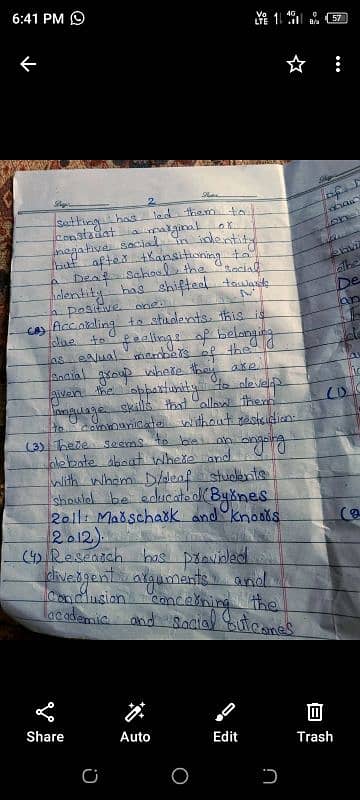 6:41 PM
Vo LTE 4G 0 B/s 57
2
setting has led them to
construct a marginal or
negative social in identity
but after transitioning to
a Deaf school, the social
identity has shifted towards
a positive one.
According to students, this is
due to feelings of belonging
as equal members of the
social group where they are
given the opportunity to develop
language skills that allow them
to communicate without restriction.
(3) There seems to be an ongoing
debate about where and
with whom D/deaf students
should be educated (Byrnes
2011: Marschark and knoors
2012).
(4) Research has provided
divergent arguments and
conclusion concerning the
academic and social outcomes
of
(1)
Share
Auto
Edit
Trash